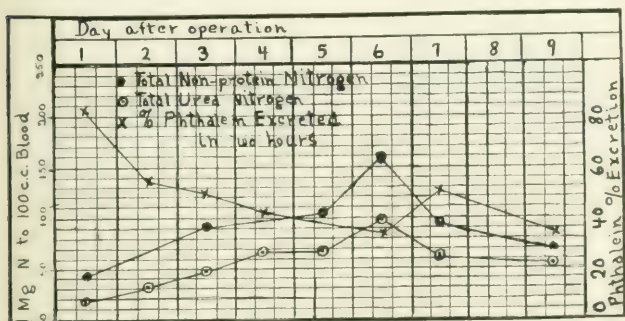 Day after operation
1 2 3 4 5 6 7 8 9
Total Non-protein Nitrogen
Total Urea Nitrogen
x % Phthalein Excreted
in two hours
Mg N to 100 c.c. Blood
0 50 100 150 200 250
0 20 40 60 80
Phthalein % Excretion